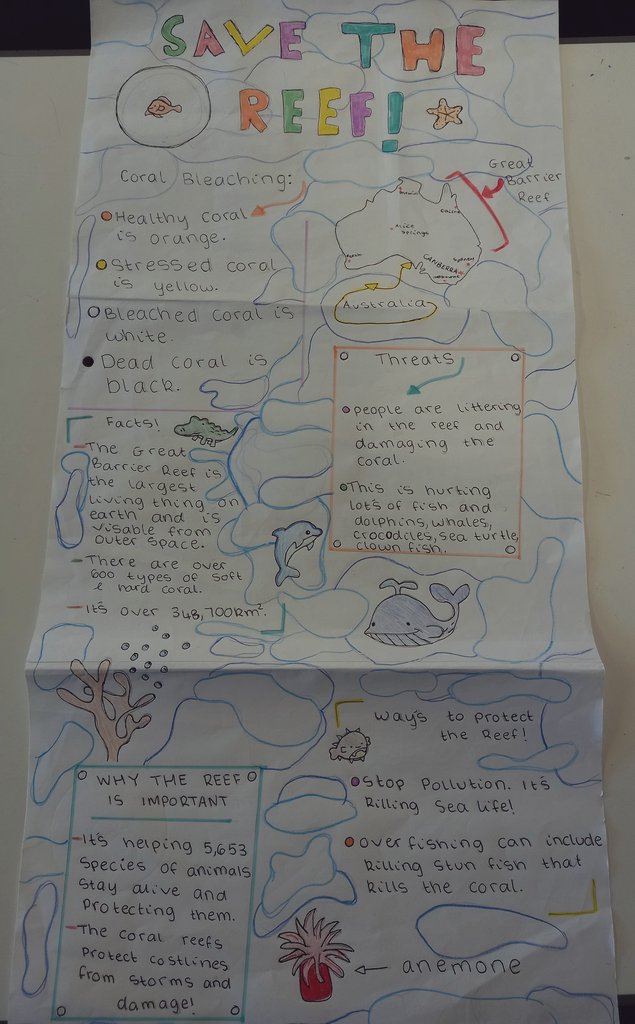 SAVE THE
REEF!
Coral Bleaching:
Healthy coral
is orange.
Stressed coral
is yellow.
Bleached coral is
white.
Dead coral is
black.
Great
Barrier
Reef
Alice
Springs
CANBERRA
Sydney
Australia
Threats
People are littering
in the reef and
damaging the
coral.
This is hurting
lots of fish and
dolphins, whales,
crocodiles, sea turtle,
clown fish.
Facts!
The Great
Barrier Reef is
the largest
living thing on
earth and is
visable from
outer space.
There are over
600 types of soft
& hard coral.
It's over 348,700km².
Way's to protect
the Reef!
Stop Pollution. It's
killing sea life!
Over fishing can include
killing stun fish that
kills the coral.
WHY THE REEF
IS IMPORTANT
It's helping 5,653
species of animals
stay alive and
Protecting them.
The coral reefs
Protect costlines
from storms and
damage!
anemone